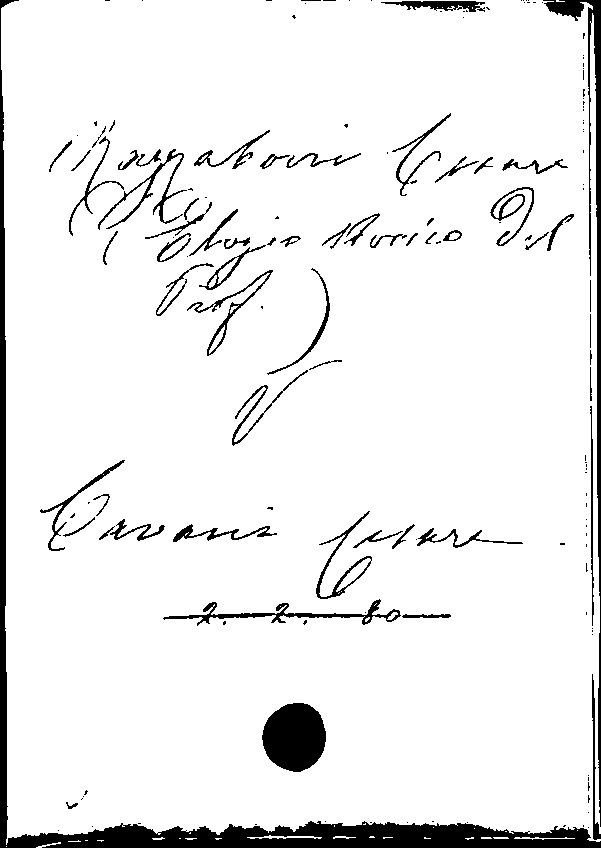 Mazzatorini Cesare
(Elogio storico Del
Prof.)
V
Cavanis Cesare
2. 2. 80